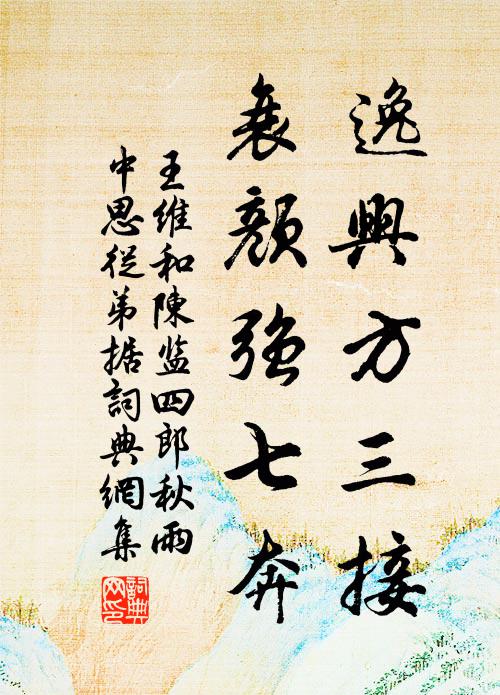 逸興方三接
衰顏強七奔
王維和陳監四郎秋雨
中思從弟据詞典網集
詞典網印